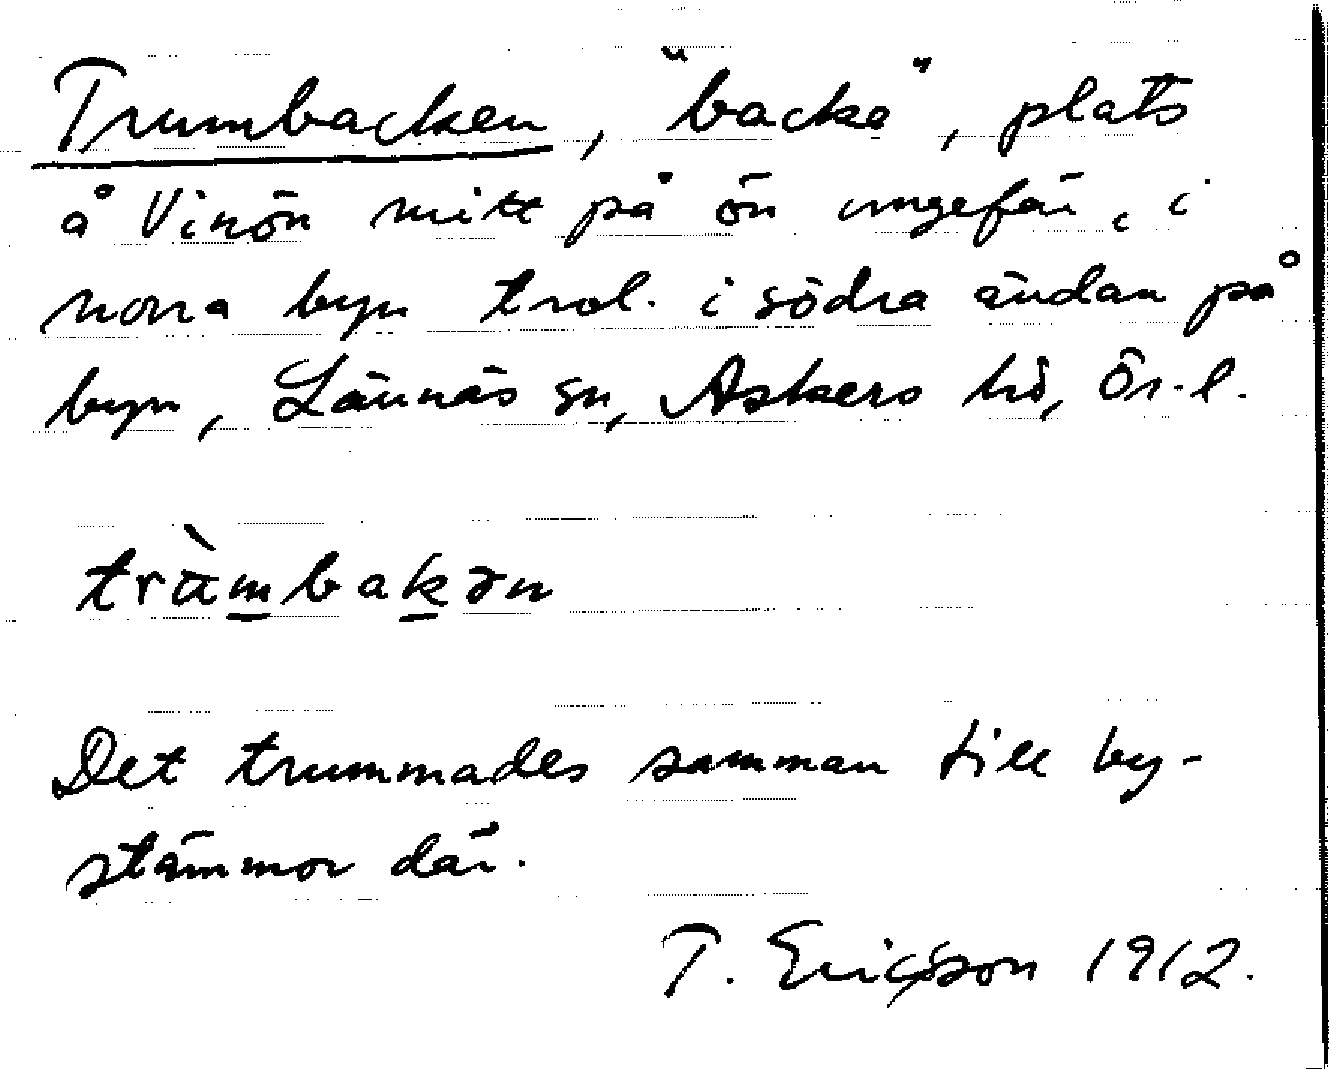 Trumbacken, "backe", plats
å Vinön mitt på ön ungefär, i
norra byn trol. i södra ändan på
byn, Lännäs sn, Askers hd, Ör.l.
tràmbakən
Det trummades samman till by-
stämmor där.
T. Ericsson 1912.